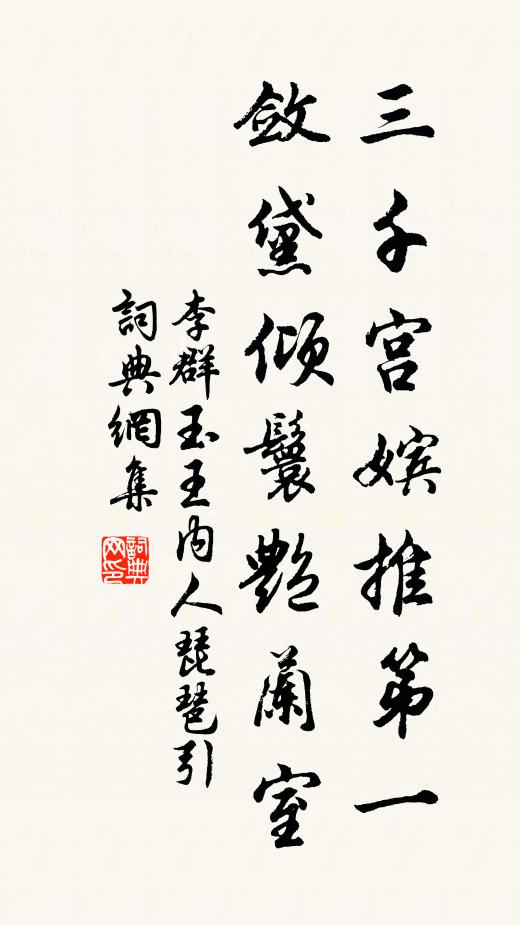 三千宫嫔推第一
斂黛傾鬟艷蘭室
李群玉王内人琵琶引
詞典網集
詞典網印